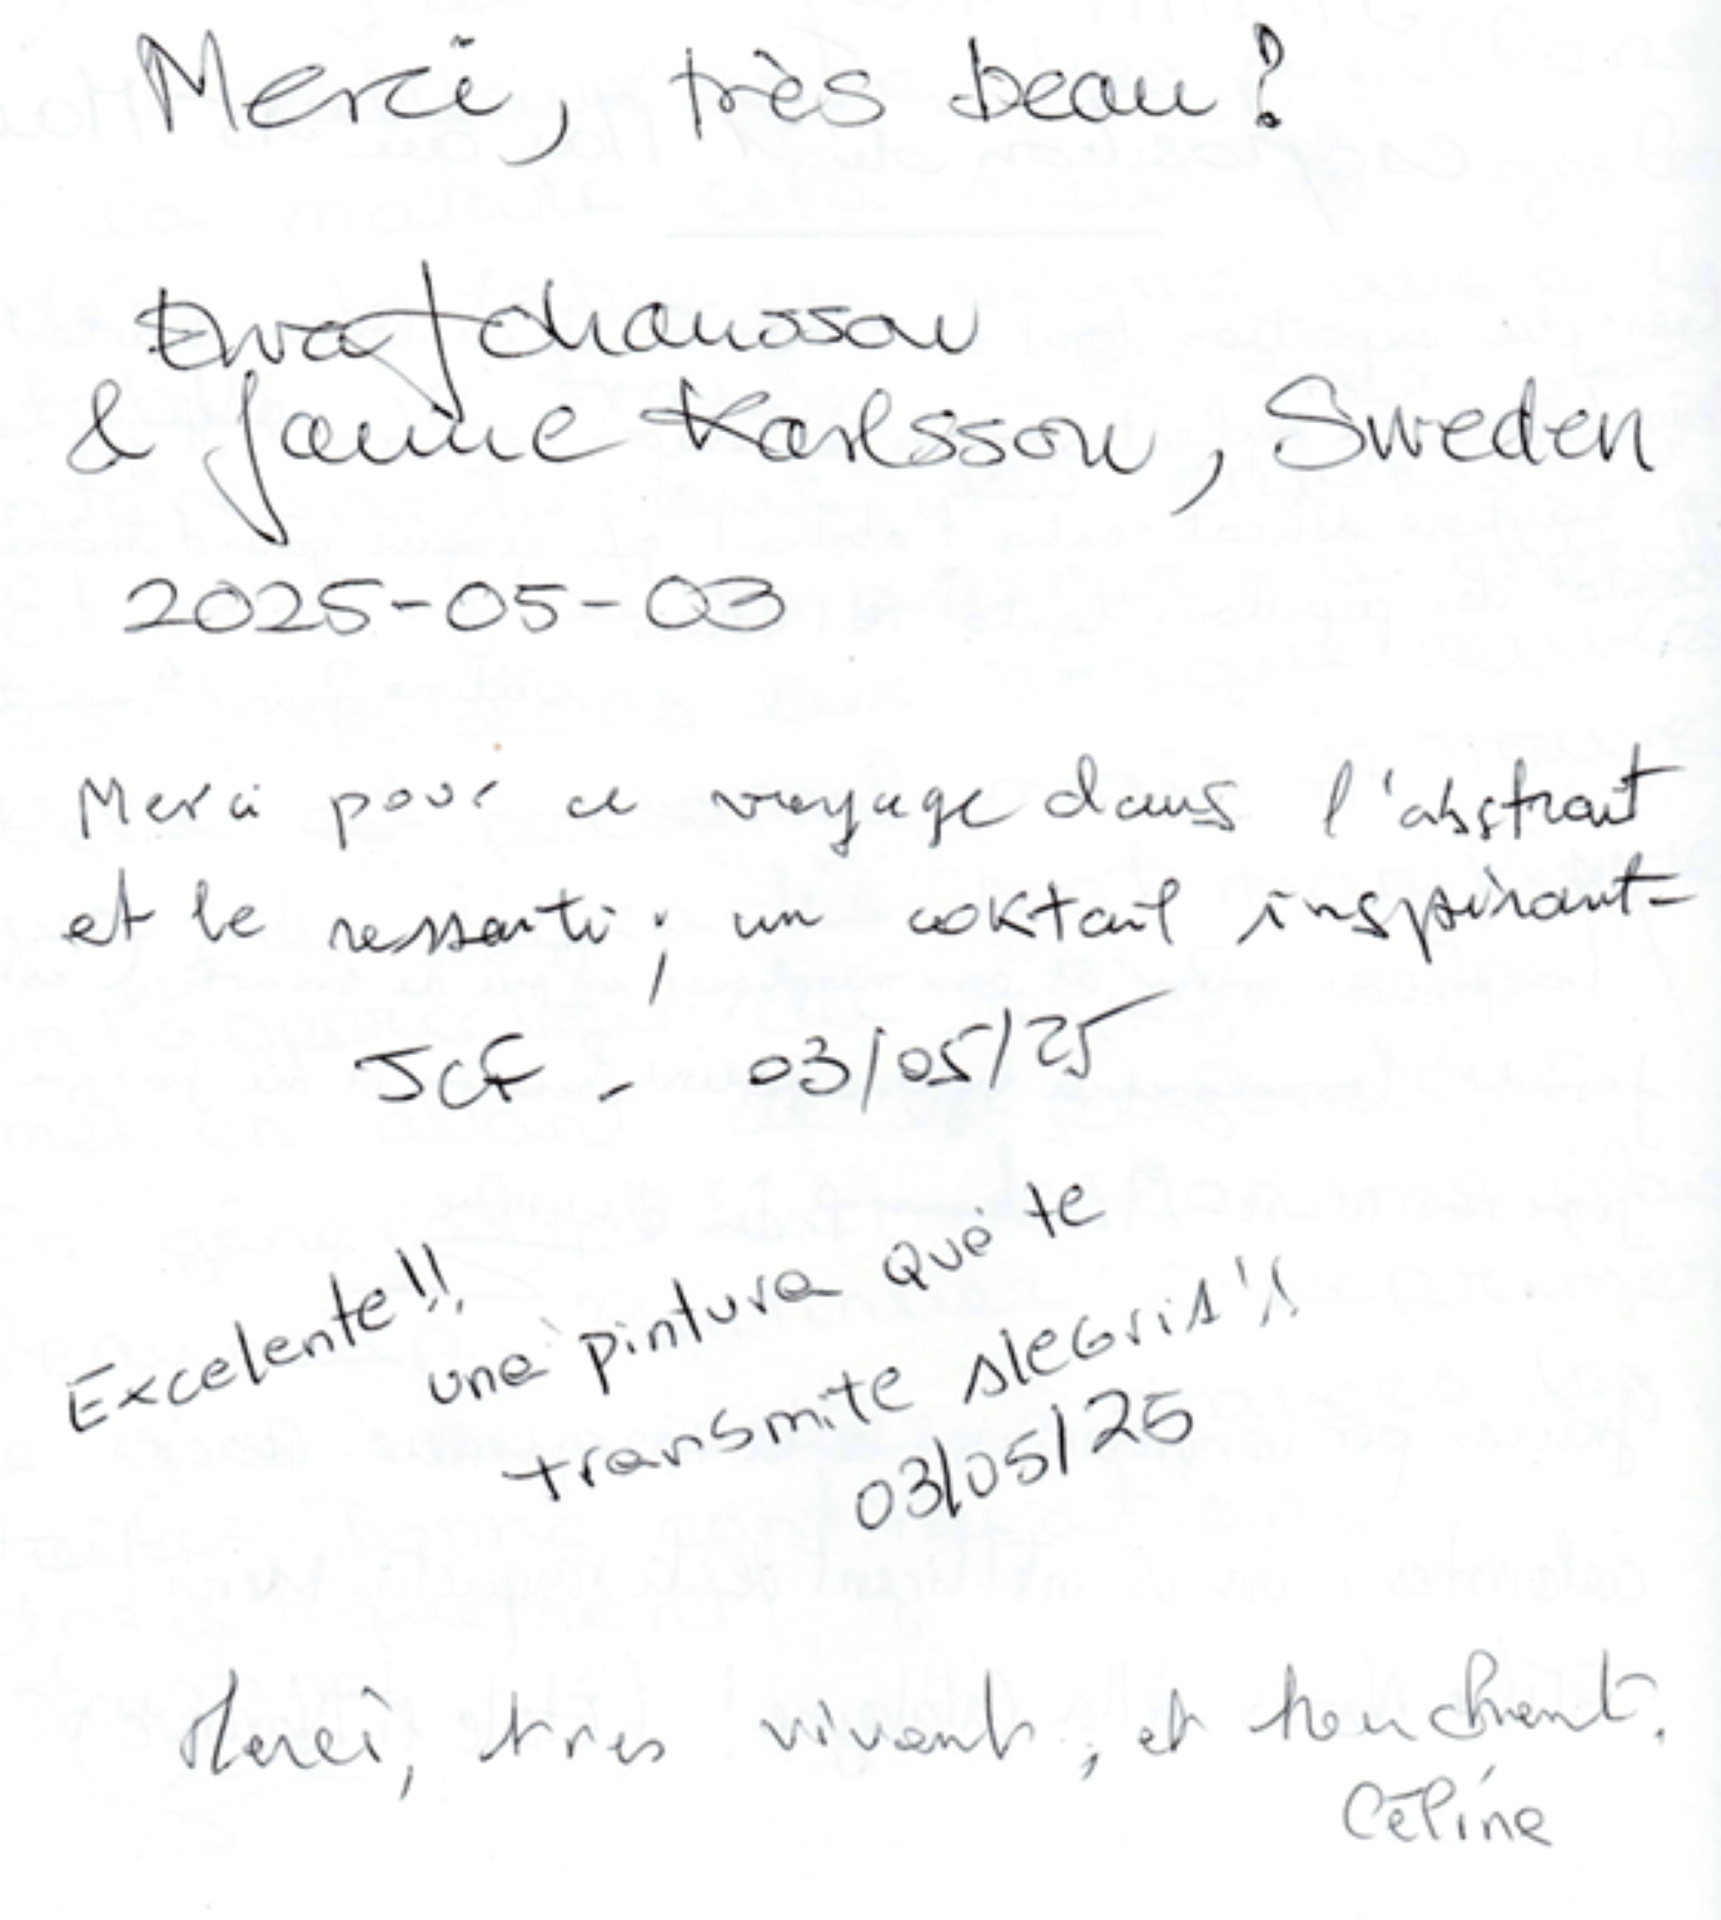 Merci, très beau!
Eva Johansson
& Janne Karlsson, Sweden
2025-05-03
Merci pour ce voyage dans l'abstrait
et le ressenti; un coktail inspirant-
JCF - 03/05/25
Excelente!!
una pintura que te
transmite alegria!!
03/05/25
Merci, tres vivant, et touchant.
Céline